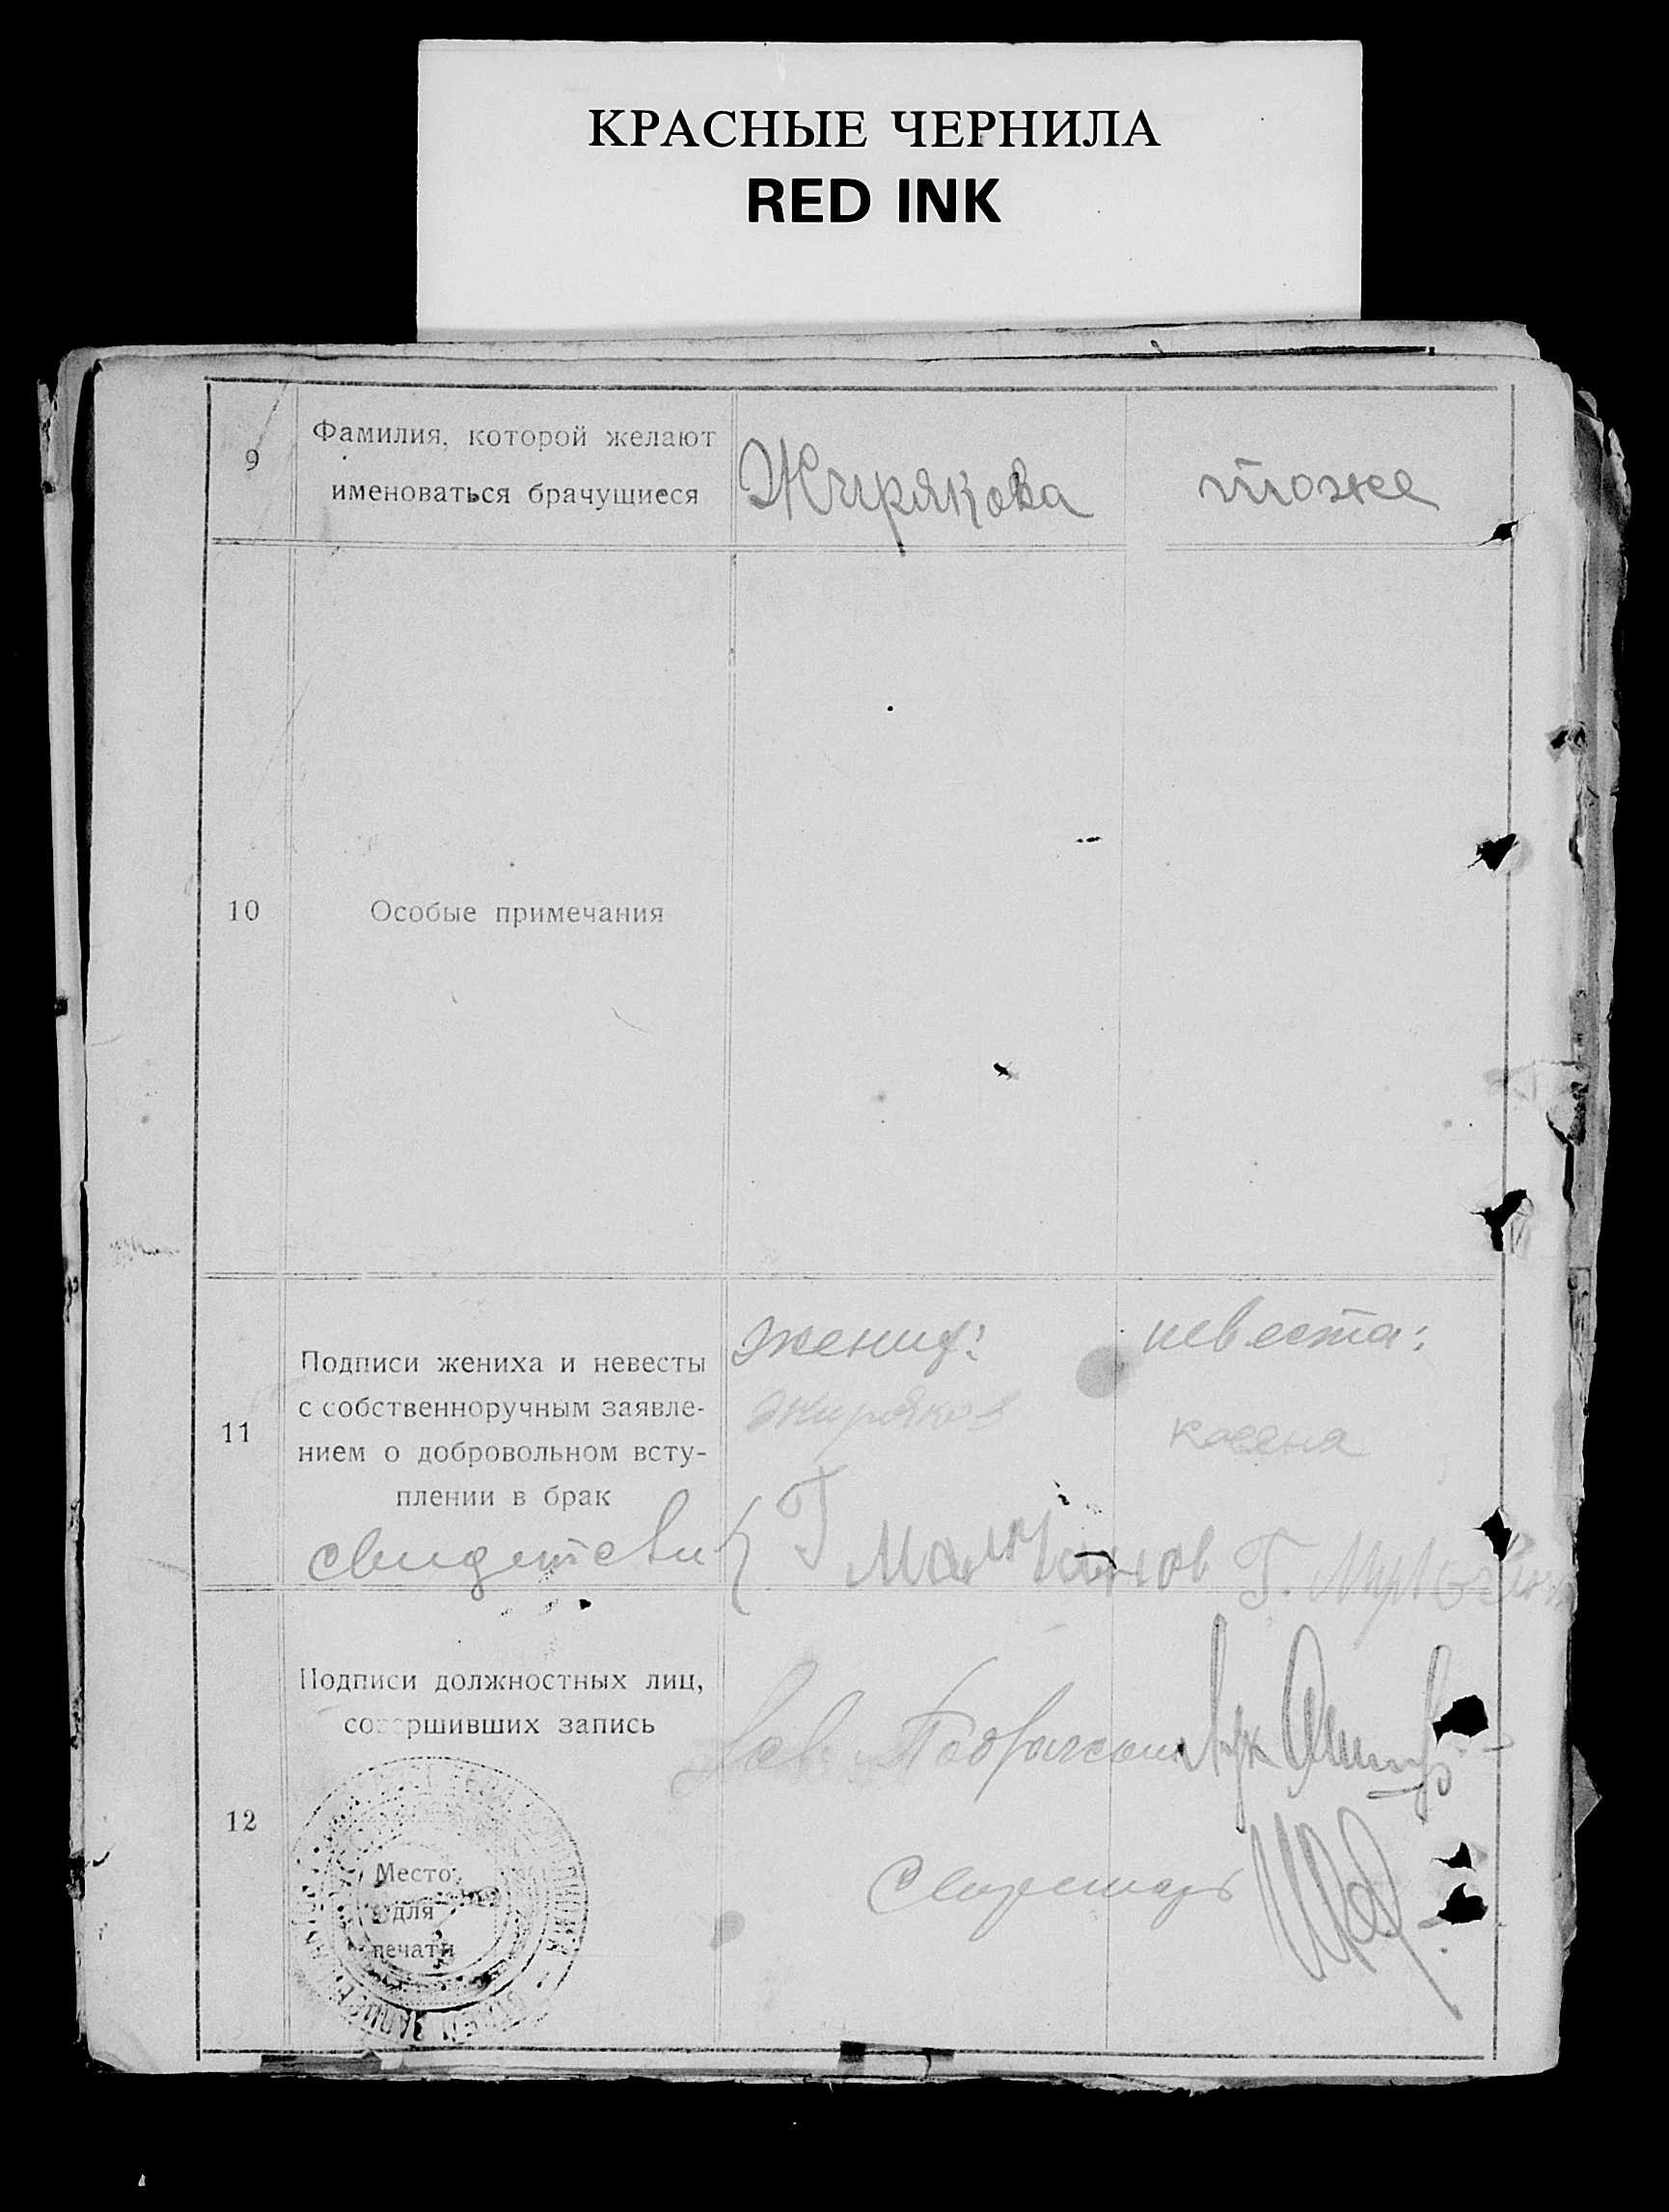 КРАСНЫЕ ЧЕРНИЛА
RED INK
9
Фамилия, которой желают
именоваться брачущиеся
Жирякова
тоже
10
Особые примечания
11
Подписи жениха и невесты
с собственноручным заявле-
нием о добровольном всту-
плении в брак
жених:
Жиряков
невеста:
свидетели
Г
Г.
12
Подписи должностных лиц,
совершивших запись
Зав.
Секретарь
Место
для
печати